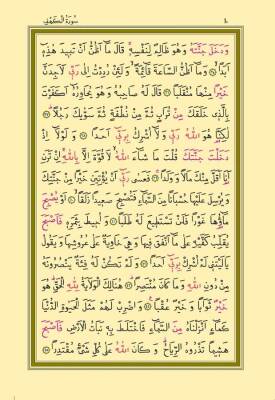 سُورَةُ الْكَهْفِ
وَدَخَلَ جَنَّتَهُ وَهُوَ ظَالِمٌ لِنَفْسِهِ قَالَ مَٓا اَظُنُّ اَنْ تَب۪يدَ هٰذِه۪ٓ
اَبَدًا وَمَٓا اَظُنُّ السَّاعَةَ قَٓائِمَةً وَلَئِنْ رُدِدْتُ اِلٰى رَبّ۪ي لَاَجِدَنَّ
خَيْرًا مِنْهَا مُنْقَلَبًا قَالَ لَهُ صَاحِبُهُ وَهُوَ يُحَاوِرُهُٓ اَكَفَرْتَ
بِالَّذ۪ي خَلَقَكَ مِنْ تُرَابٍ ثُمَّ مِنْ نُطْفَةٍ ثُمَّ سَوّٰيكَ رَجُلًا
لٰكِنَّا۬ هُوَ اللّٰهُ رَبّ۪ي وَلَٓا اُشْرِكُ بِرَبّ۪ٓي اَحَدًا وَلَوْلَٓا اِذْ
دَخَلْتَ جَنَّتَكَ قُلْتَ مَا شَٓاءَ اللّٰهُ لَا قُوَّةَ اِلَّا بِاللّٰهِ اِنْ تَرَنِ
اَنَا۬ اَقَلَّ مِنْكَ مَالًا وَوَلَدًا فَعَسٰى رَبّ۪ٓي اَنْ يُؤْتِيَنِ خَيْرًا مِنْ جَنَّتِكَ
وَيُرْسِلَ عَلَيْهَا حُسْبَانًا مِنَ السَّمَٓاءِ فَتُصْبِحَ صَع۪يدًا زَلَقًا اَوْ يُصْبِحَ
مَٓاؤُ۬هَا غَوْرًا فَلَنْ تَسْتَط۪يعَ لَهُ طَلَبًا وَاُح۪يطَ بِثَمَرِه۪ فَاَصْبَحَ
يُقَلِّبُ كَفَّيْهِ عَلٰى مَٓا اَنْفَقَ ف۪يهَا وَهِيَ خَاوِيَةٌ عَلٰى عُرُوشِهَا وَيَقُولُ
يَا لَيْتَن۪ي لَمْ اُشْرِكْ بِرَبّ۪ٓي اَحَدًا وَلَمْ تَكُنْ لَهُ فِئَةٌ يَنْصُرُونَهُ
مِنْ دُونِ اللّٰهِ وَمَا كَانَ مُنْتَصِرًا هُنَالِكَ الْوَلَايَةُ لِلّٰهِ الْحَقِّ هُوَ
خَيْرٌ ثَوَابًا وَخَيْرٌ عُقْبًا وَاضْرِبْ لَهُمْ مَثَلَ الْحَيٰوةِ الدُّنْيَا
كَمَٓاءٍ اَنْزَلْنَاهُ مِنَ السَّمَٓاءِ فَاخْتَلَطَ بِه۪ نَبَاتُ الْاَرْضِ فَاَصْبَحَ
هَش۪يمًا تَذْرُوهُ الرِّيَاحُ وَكَانَ اللّٰهُ عَلٰى كُلِّ شَيْءٍ مُقْتَدِرًا